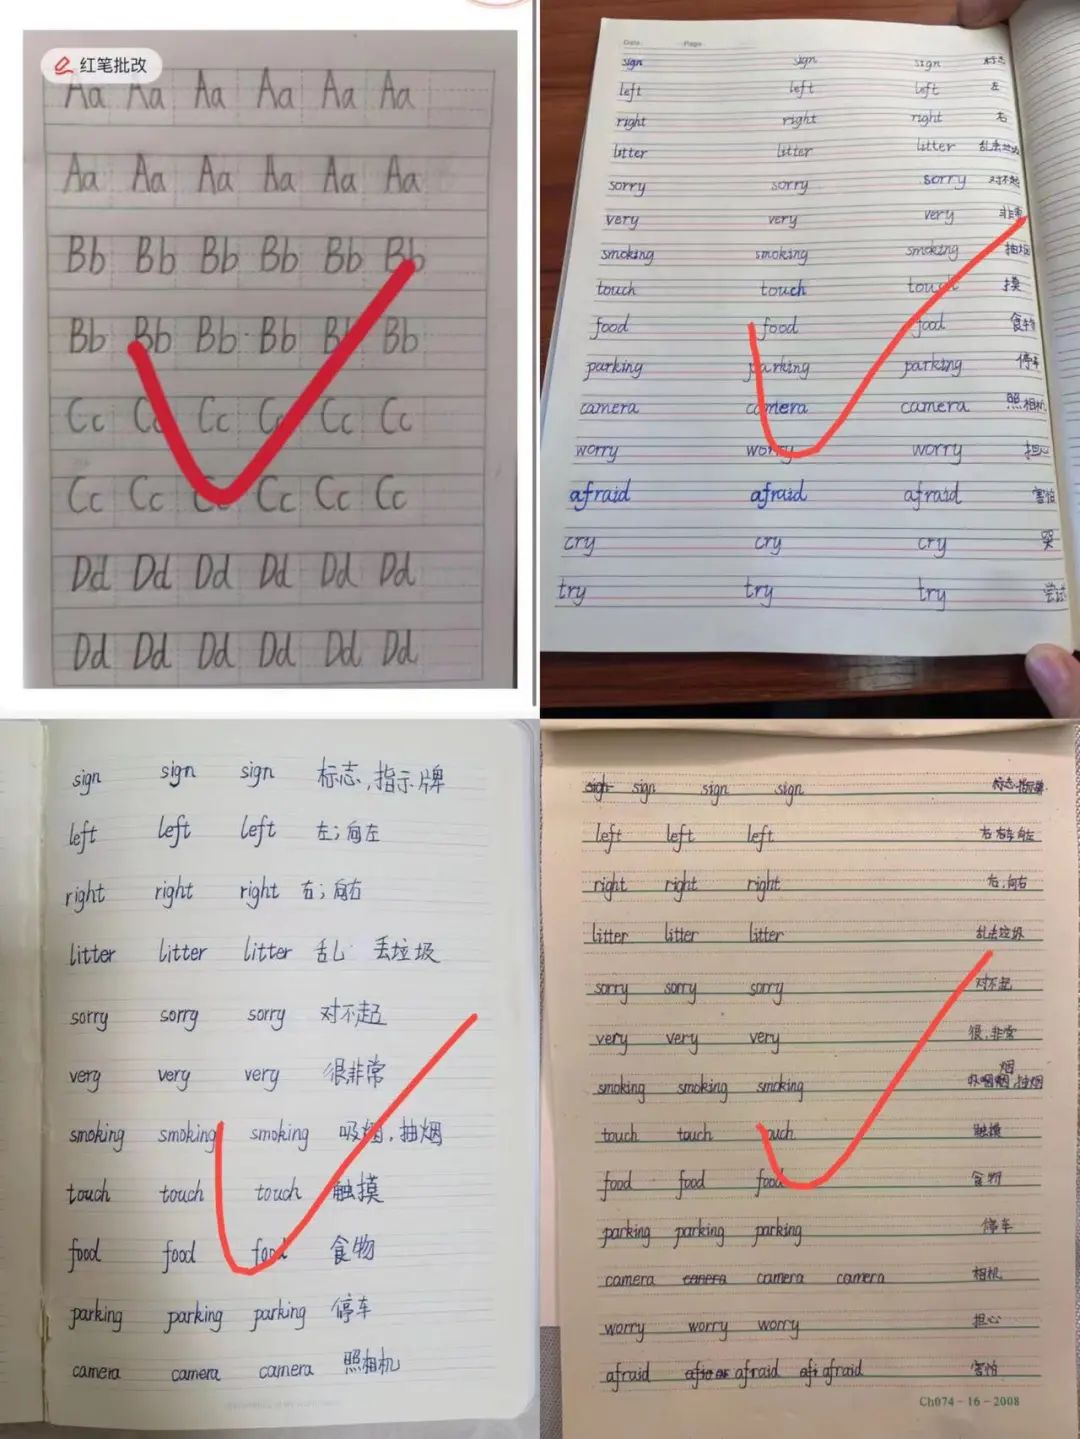 红笔批改
Aa Aa Aa Aa Aa Aa
Aa Aa Aa Aa Aa Aa
Bb Bb Bb Bb Bb Bb
Bb Bb Bb Bb Bb Bb
Cc Cc Cc Cc Cc Cc
Cc Cc Cc Cc Cc Cc
Dd Dd Dd Dd Dd Dd
Dd Dd Dd Dd Dd Dd
Date Page
sign sign sign 标志
left left left 左
right right right 右
litter litter litter 乱丢垃圾
sorry sorry sorry 对不起
very very very 非常
smoking smoking smoking 抽烟
touch touch touch 摸
food food food 食物
parking parking parking 停车
camera camera camera 照相机
worry worry worry 担心
afraid afraid afraid 害怕
cry cry cry 哭
try try try 尝试
sign sign sign 标志,指示牌
left left left 左;向左
right right right 右;向右
litter litter litter 乱 丢垃圾
sorry sorry sorry 对不起
very very very 很非常
smoking smoking smoking 吸烟,抽烟
touch touch touch 触摸
food food food 食物
parking parking parking 停车
camera camera camera 照相机
sign sign sign 标志.指示牌
left left left 向左
right right right 右,向右
litter litter litter 乱丢垃圾
sorry sorry sorry 对不起
very very very 很,非常
smoking smoking smoking 烟 抽烟
touch touch touch 触摸
food food food 食物
parking parking parking 停车
camera camera camera camera 相机
worry worry worry 担心
afraid afraid afraid 害怕
Ch074-16-2008